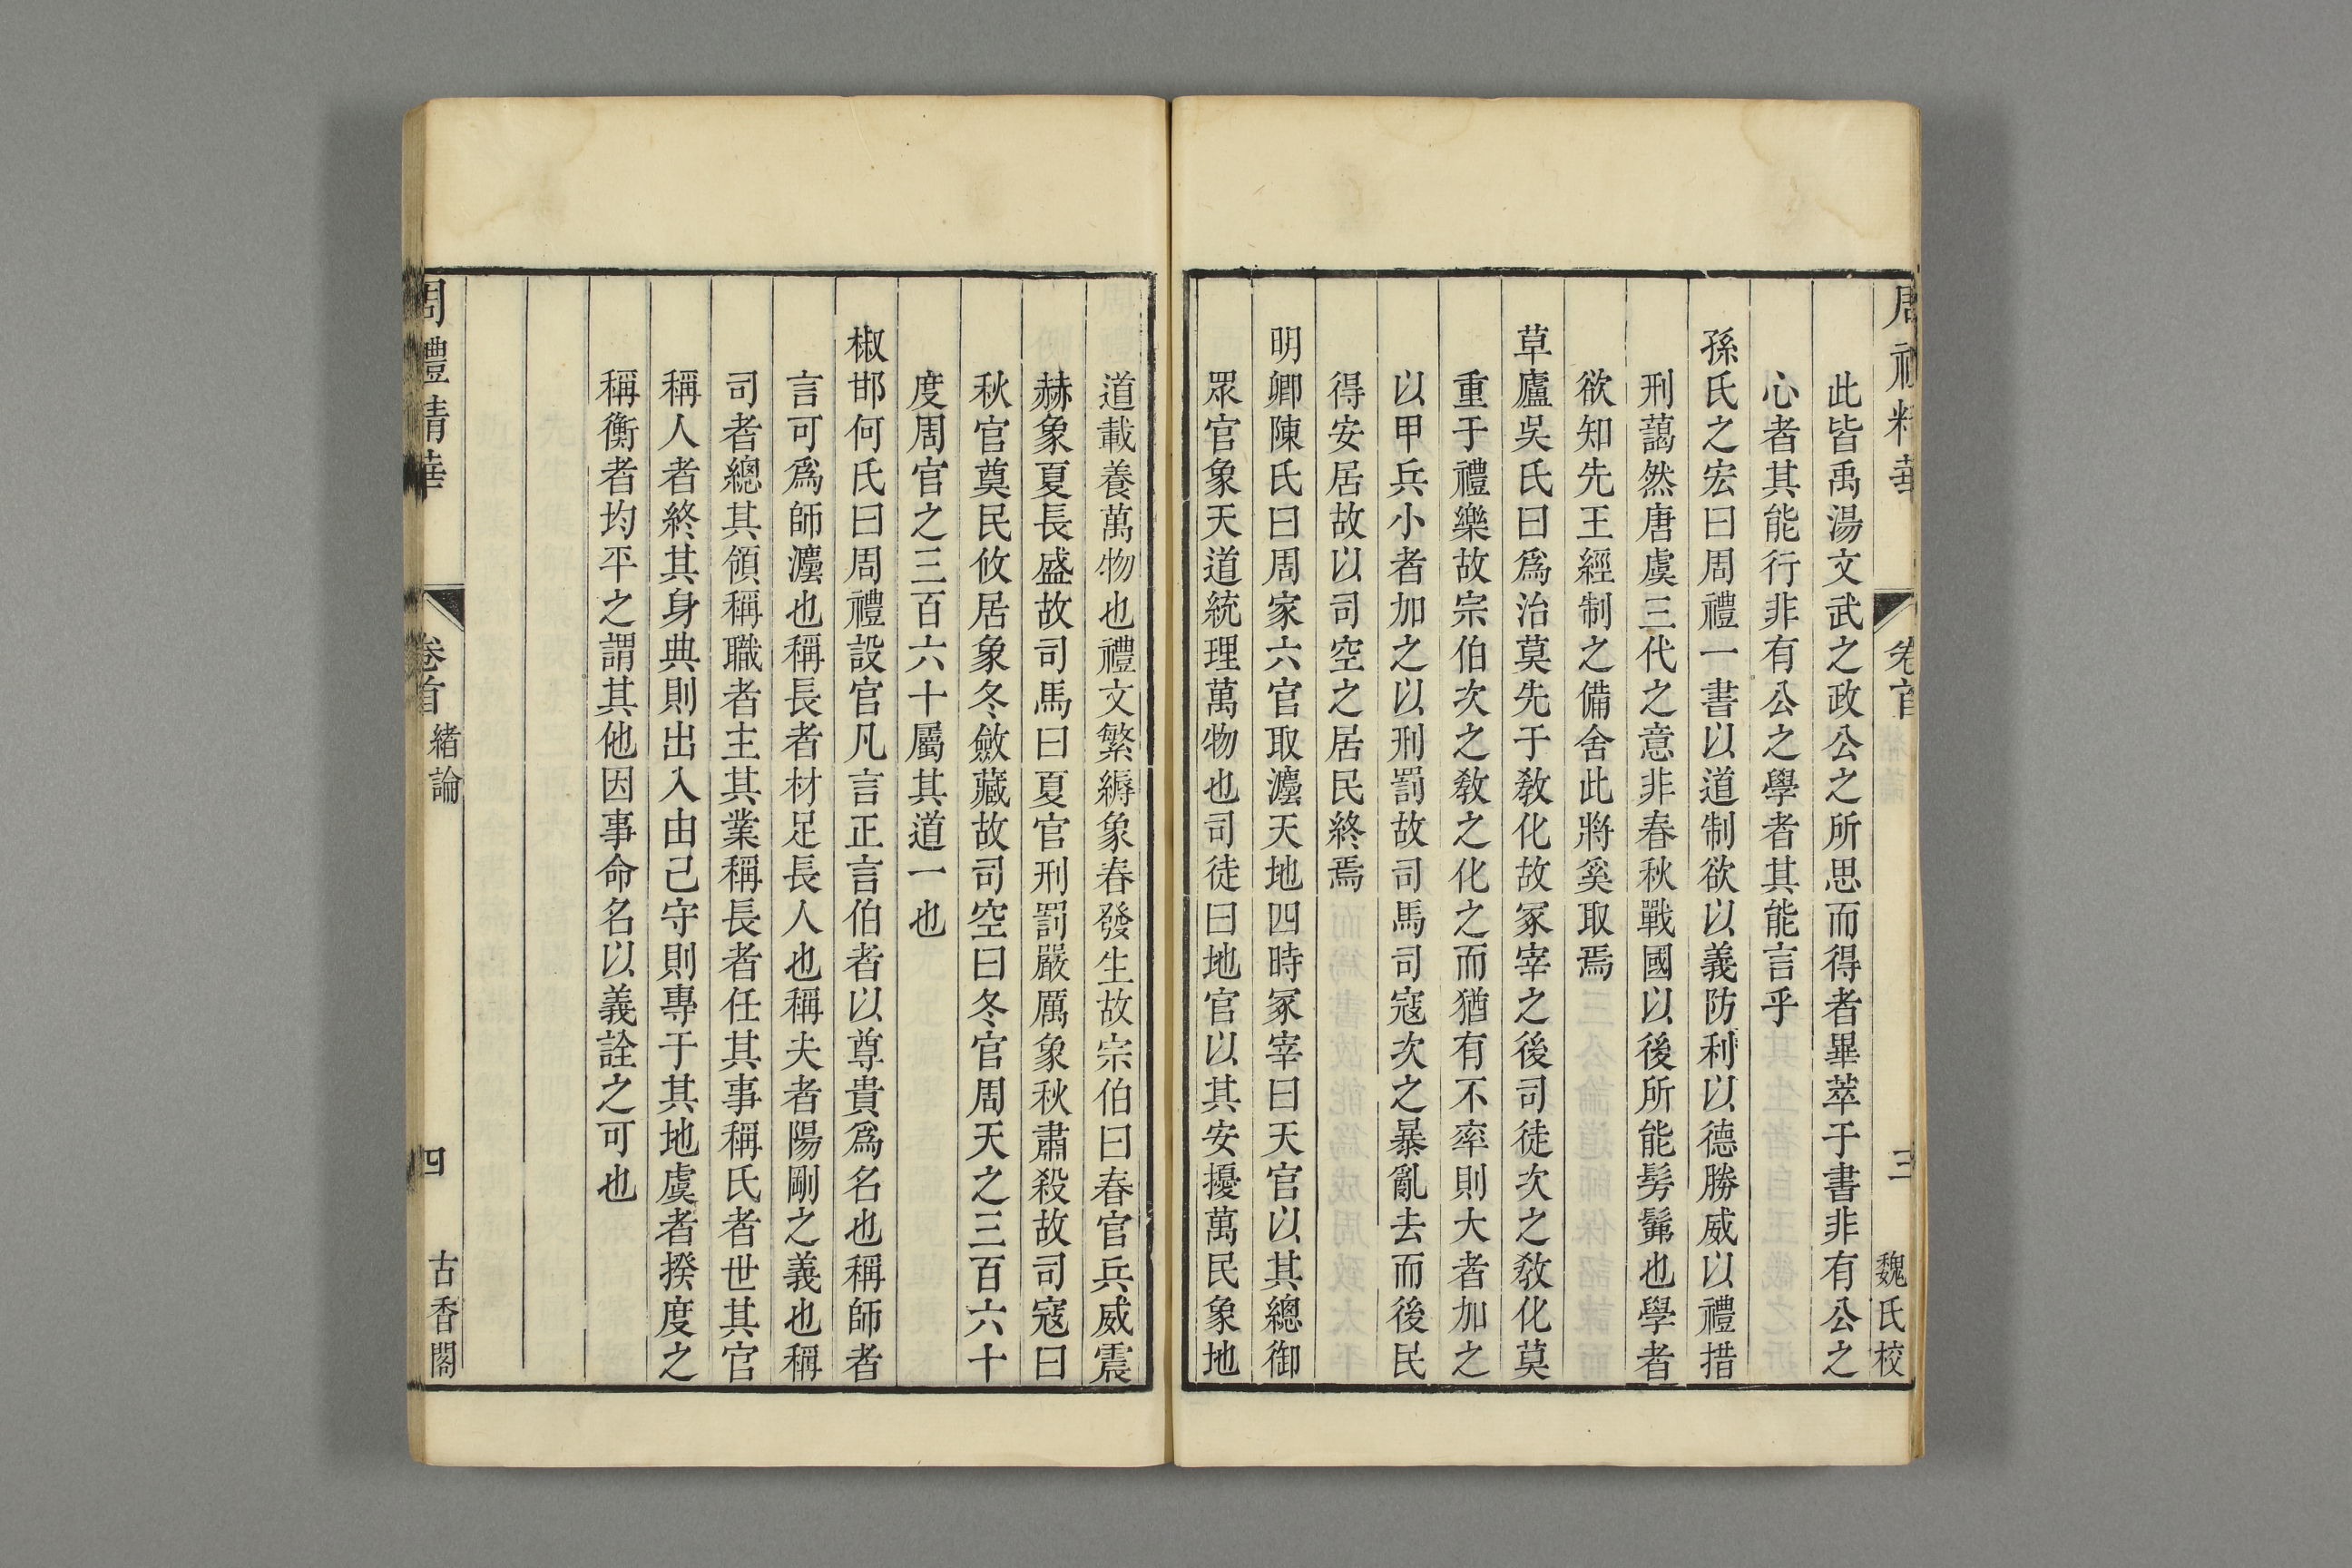 周禮精華 卷首 三 魏氏校
此皆禹湯文武之政公之所思而得者畢萃于書非有公之
心者其能行非有公之學者其能言乎
孫氏之宏曰周禮一書以道制欲以義防利以德勝威以禮措
刑藹然唐虞三代之意非春秋戰國以後所能髣髴也學者
欲知先王經制之備舍此將奚取焉
草廬吳氏曰爲治莫先于敎化故冢宰之後司徒次之敎化莫
重于禮樂故宗伯次之敎之化之而猶有不率則大者加之
以甲兵小者加之以刑罰故司馬司寇次之暴亂去而後民
得安居故以司空之居民終焉
明卿陳氏曰周家六官取灋天地四時冢宰曰天官以其總御
眾官象天道統理萬物也司徒曰地官以其安擾萬民象地
道載養萬物也禮文繁縟象春發生故宗伯曰春官兵威震
赫象夏長盛故司馬曰夏官刑罰嚴厲象秋肅殺故司寇曰
秋官奠民攸居象冬斂藏故司空曰冬官周天之三百六十
度周官之三百六十屬其道一也
椒邯何氏曰周禮設官凡言正言伯者以尊貴爲名也稱師者
言可爲師灋也稱長者材足長人也稱夫者陽剛之義也稱
司者總其領稱職者主其業稱長者任其事稱氏者世其官
稱人者終其身典則出入由己守則專于其地虞者揆度之
稱衡者均平之謂其他因事命名以義詮之可也
周禮精華 卷首 緒論 四 古香閣